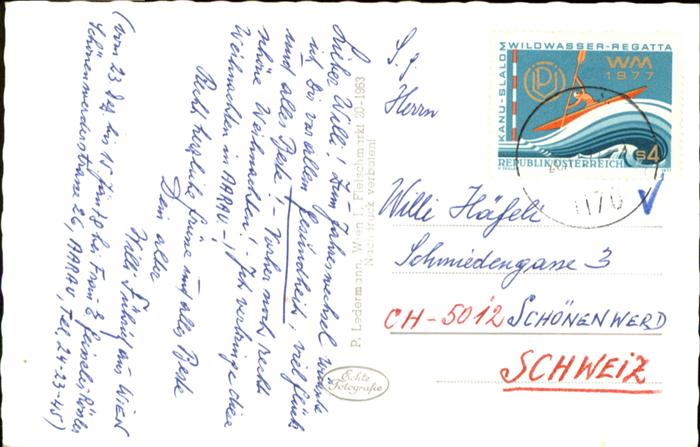 Lieber Willi! Zum Jahreswechsel wünsche
ich Dir vor allem Gesundheit, viel Glück
und alles Beste! - Vorher noch recht
schöne Weihnachten! Ich verbringe diese
Weihnachten in AARAU -!
Recht herzliche Grüsse und alles Beste
Dein alter
Willi aus WIEN
(vom 23 Dez. bis 15 Jän 78 bei
Schönenwerderstrasse 26, AARAU, Tel. 24-23-45)
P. Ledermann, Wien I, Fleischmarkt 20-1963
Nachdruck verboten!
Echte
Fotografie
KANU-SLALOM WILDWASSER-REGATTA
WM
1977
REPUBLIK ÖSTERREICH
S4
1170
Herrn
Willi Häfeli
Schmiedengasse 3
CH-5012 SCHÖNENWERD
SCHWEIZ